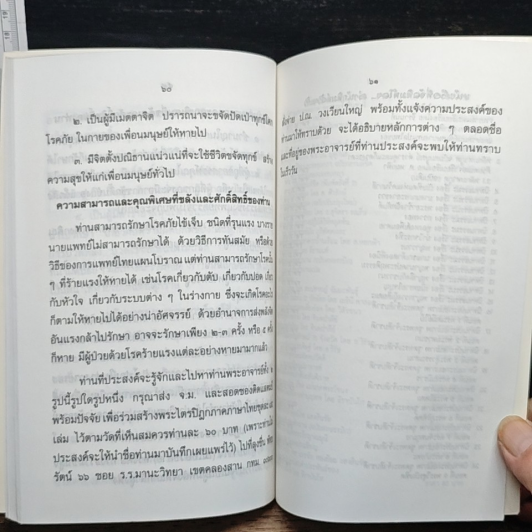 ๖๐
๒. เป็นผู้มีเมตตาจิต ปรารถนาจะขจัดปัดเป่าทุกข์
โรคภัย ในกายของเพื่อนมนุษย์ให้หายไป
๓. มีจิตตั้งปณิธานแน่วแน่ที่จะใช้ชีวิตขจัดทุกข์ สร้าง
ความสุขให้แก่เพื่อนมนุษย์ทั่วไป
ความสามารถและคุณพิเศษที่ขลังและศักดิ์สิทธิ์ของท่าน
ท่านสามารถรักษาโรคภัยไข้เจ็บ ชนิดที่รุนแรง บาง
นายแพทย์ไม่สามารถรักษาได้ ด้วยวิธีการทันสมัย หรือด้วย
วิธีของการแพทย์ไทยแผนโบราณ แต่ท่านสามารถรักษาโรค
ๆ ที่ร้ายแรงให้หายได้ เช่นโรคเกี่ยวกับตับ เกี่ยวกับปอด เกี่ยว
กับหัวใจ เกี่ยวกับระบบต่าง ๆ ในร่างกาย ซึ่งจะเกิดโรค
ก็ตามให้หายไปได้อย่างน่าอัศจรรย์ ด้วยอำนาจการส่งพลัง
อันแรงกล้าไปรักษา อาจจะรักษาเพียง ๒-๓ ครั้ง หรือ ๕ ครั้ง
ก็หาย มีผู้ป่วยด้วยโรคร้ายแรงแต่ละอย่างหายมามากแล้ว
ท่านที่ประสงค์จะรู้จักและไปหาท่านพระอาจารย์ทั้ง
รูปนี้รูปใดรูปหนึ่ง กรุณาส่ง จ.ม. และสอดซองติดแสตมป์
พร้อมปัจจัย เพื่อร่วมสร้างพระไตรปิฎกภาคภาษาไทยชุดละ
เล่ม ไว้ตามวัดที่เห็นสมควรท่านละ ๖๐ บาท (เพราะท่าน
ประสงค์จะให้นำชื่อท่านมาบันทึกเผยแพร่ไว้) ไปที่ลุงชั้น
รัตน์ ๖๖ ซอย ร.ร.มานะวิทยา เขตคลองสาน กทม.
๖๑
สั่งจ่าย ป.ณ. วงเวียนใหญ่ พร้อมทั้งแจ้งความประสงค์ของ
ท่านมาให้ทราบด้วย จะได้อธิบายหลักการต่าง ๆ ตลอดชื่อ
และที่อยู่ของพระอาจารย์ที่ท่านประสงค์จะพบให้ท่านทราบ